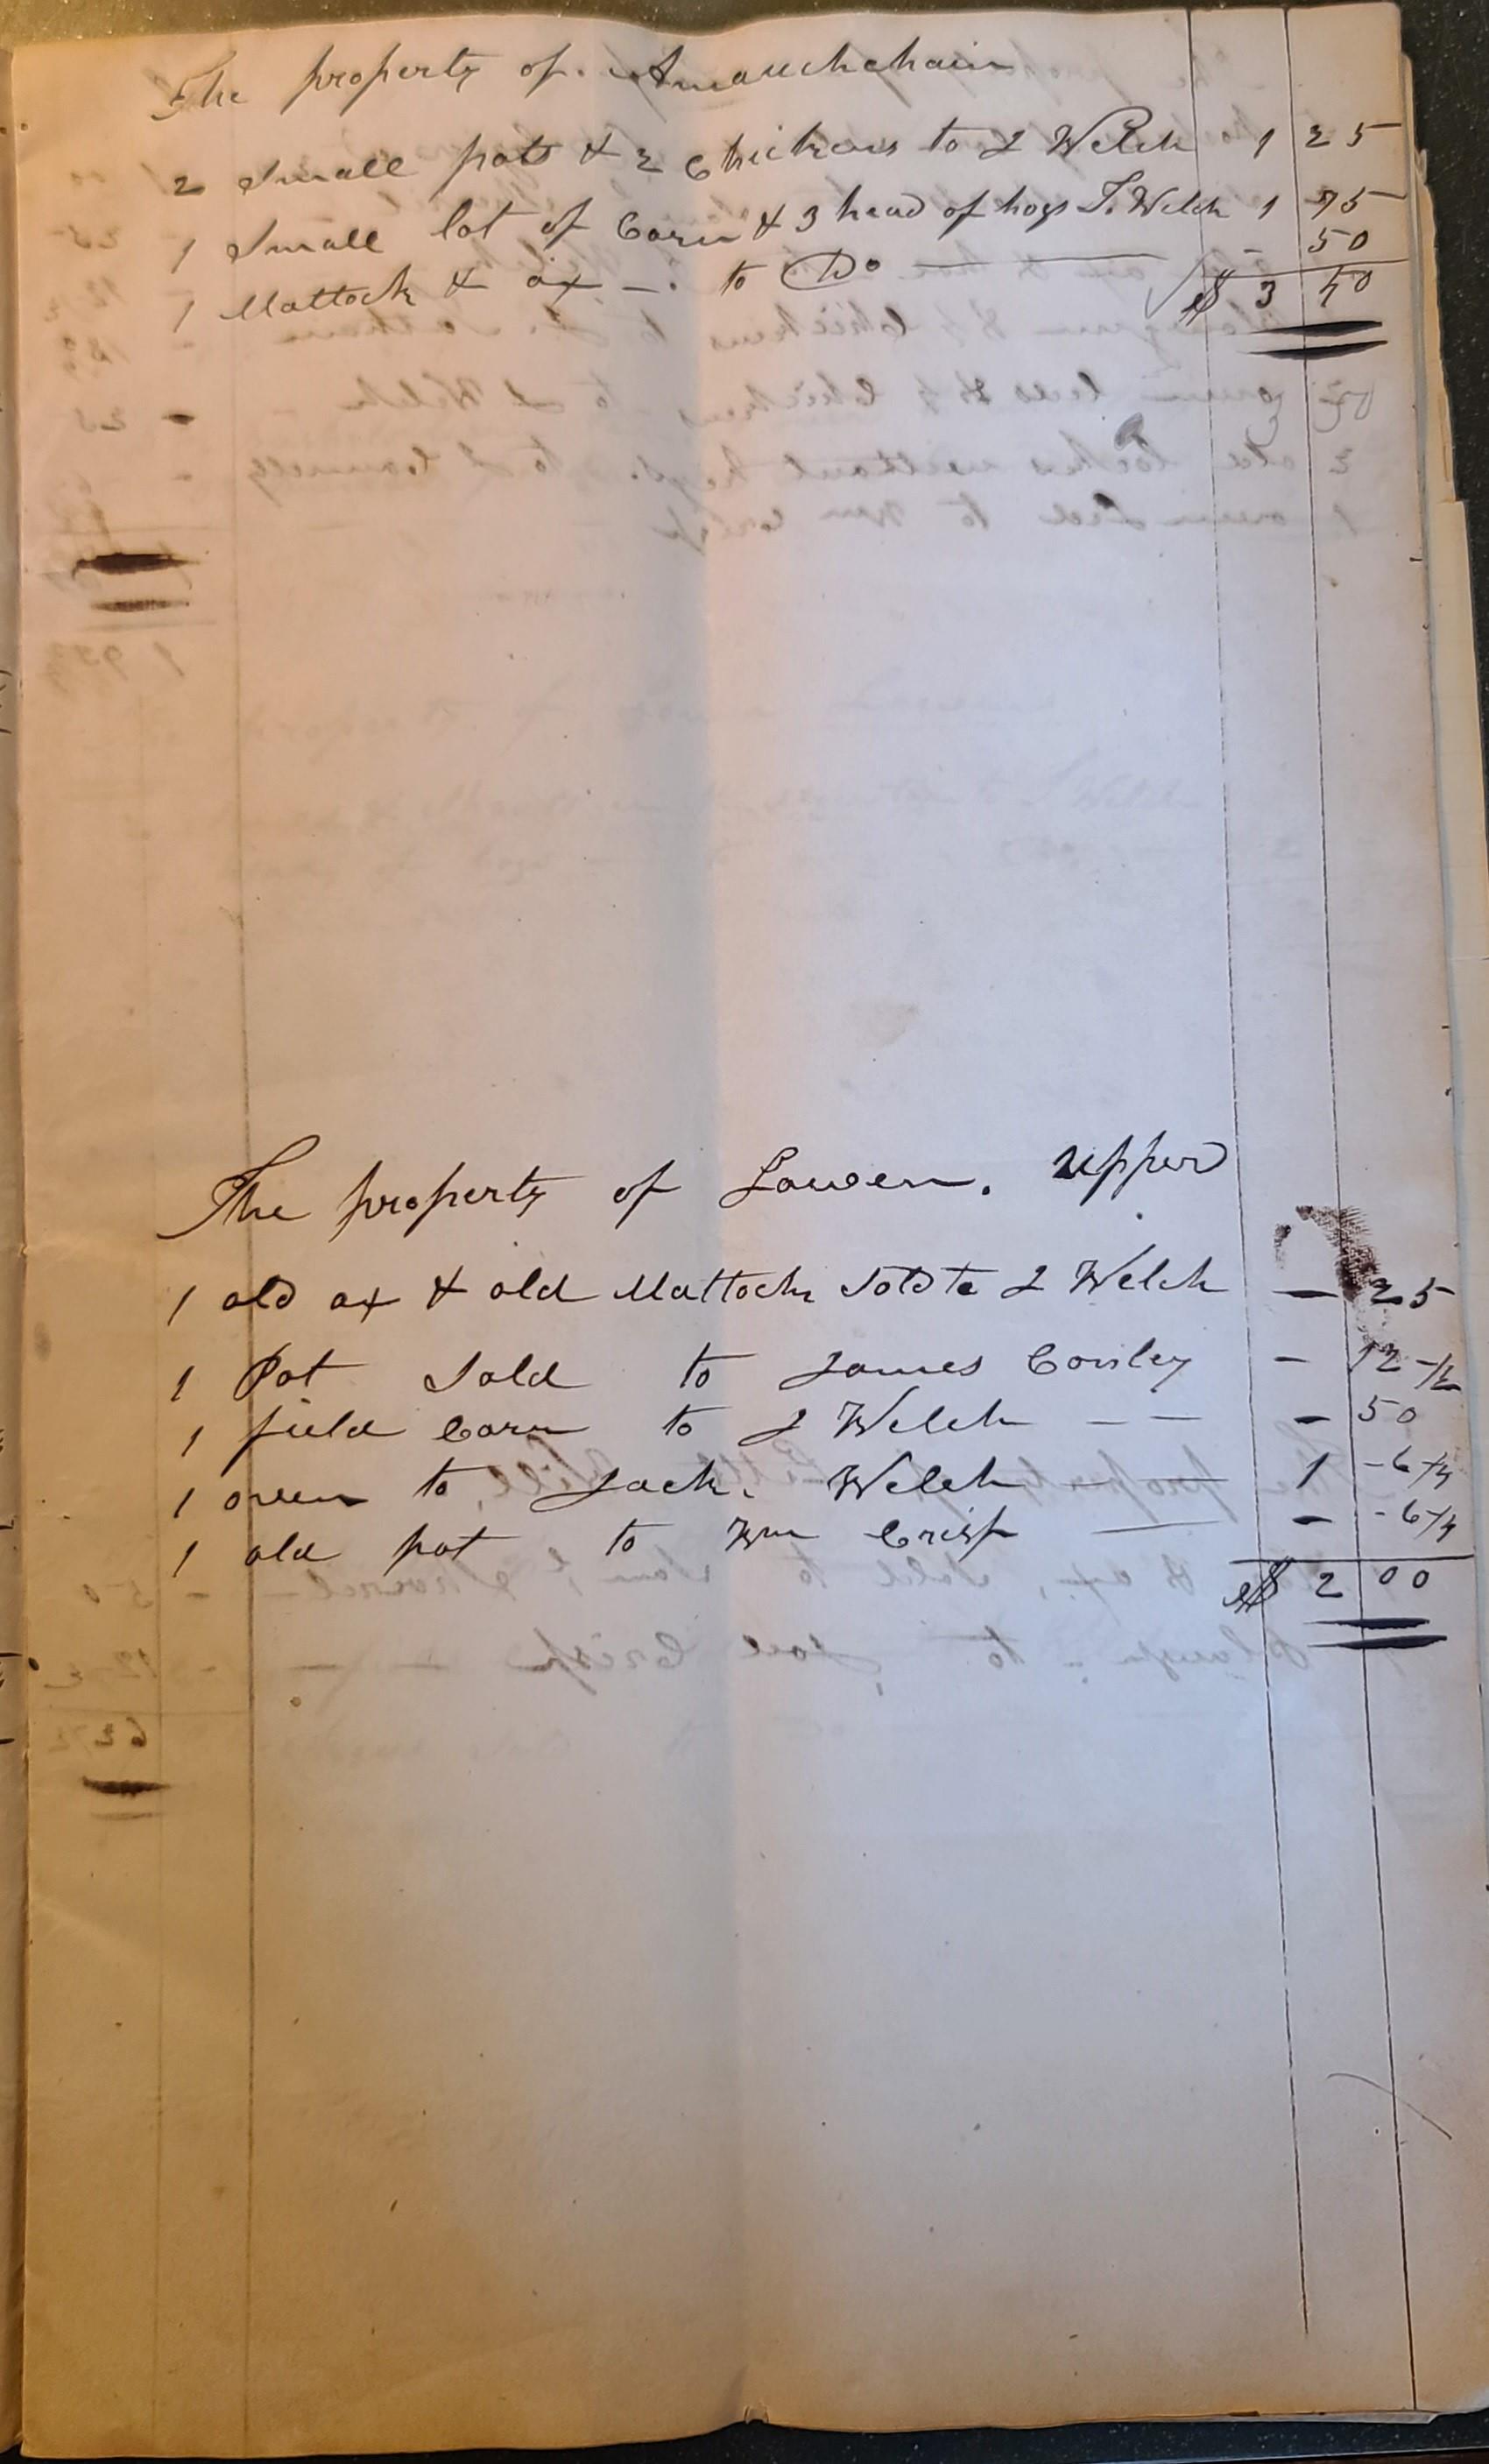 The property of. Amauchchain
2 Small pots & 2 Chickens to J Welch 1 25
1 Small lot of Corn & 3 head of hogs J. Welch 1 75
1 Mattock & ax - . to Do - 50
$ 3 50
The property of Lowen. upper
1 old ax & old Mattock Sold to J Welch - 25
1 Pot Sold to James Conley - 12 1/2
1 field Corn to J Welch - - - 50
1 oven to Jack. Welch 1 - 6 1/4
1 old pot to Wm Crisp - - 6 1/4
$ 2 00